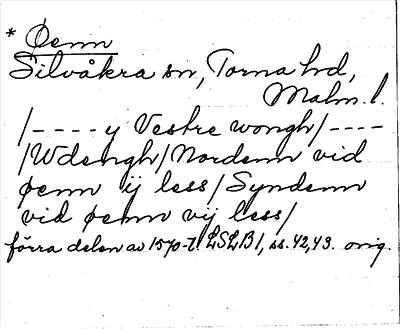 * Øenn
Silvåkra sn, Torna hd,
Malm. l.
/---- y Vestre wongh/----
/Wdengh/Nordenn vid
øenn ij less/Syndenn
vid øenn vij less/
förra delen av 1570-t. LSLB1, ss. 42,43. orig.